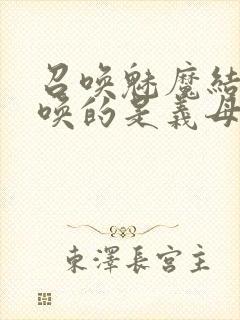 召唤魅魔结
唤的是义母
東澤長宮主